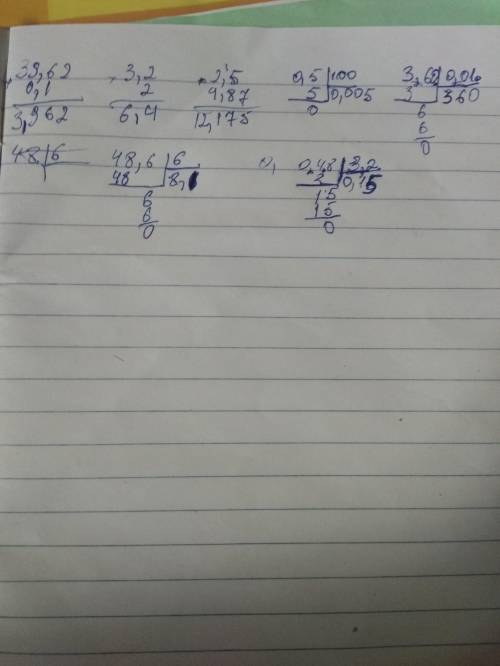 39,62 3,2 2,5 0,5 100 3,60 0,06
0,1 2 4,87 5 0,005 3 360
3,962 6,4 12,175 0 6
6
0
48, 6 48,6 6 0, 0,48 3,2
48 8,1 3 0,15
6 15
6 15
0 0